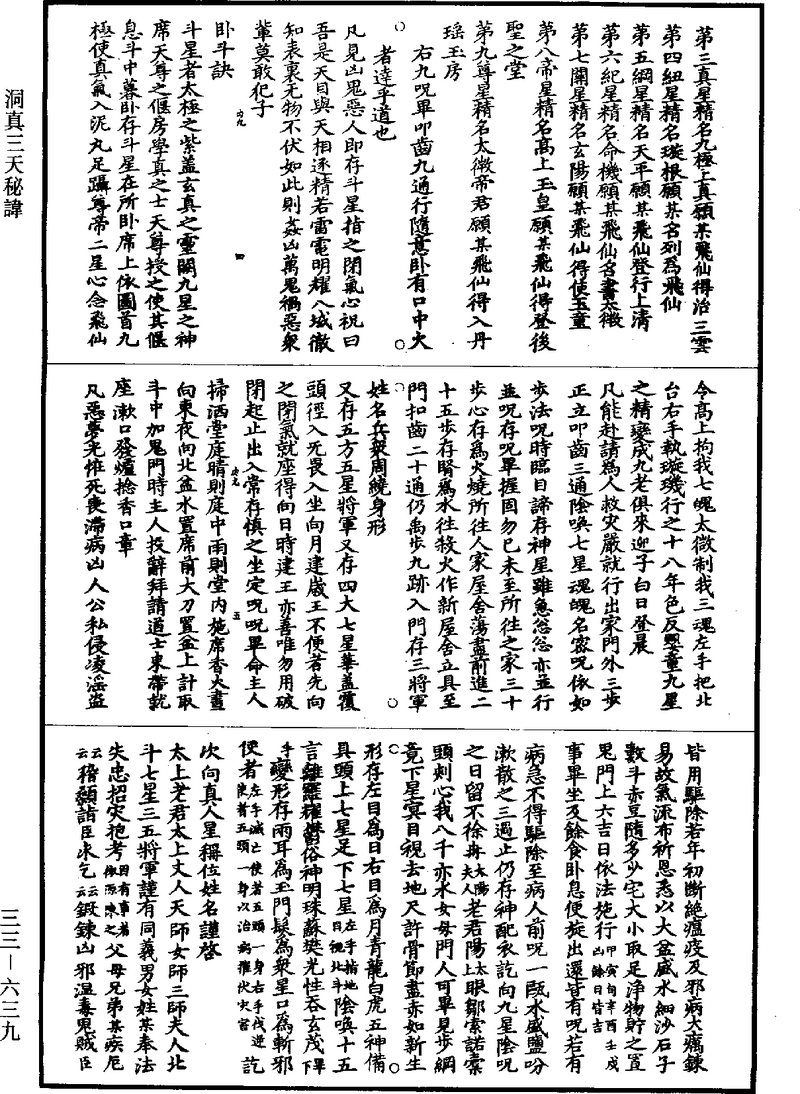 第三真星精名九極上真願某飛仙得治三雲
第四紐星精名璇根願某名列為飛仙
第五綱星精名天平願某飛仙登行上清
第六紀星精名命機願某飛仙名書太微
第七關星精名玄陽願某飛仙得使玉童
第八帝星精名高上玉皇願某飛仙得登後
聖之堂
第九尊星精名太微帝君願某飛仙得入丹
瑶玉房
右九呪畢叩齒九通行隨意卧有口中大
者達乎道也
凡見凶鬼惡人即存斗星指之閉氣心祝曰
吾是天目與天相逐精若雷電明耀八域徹
知表裏无物不伏如此則姦凶萬鬼禍惡衆
輩莫敢犯子
卧斗訣
斗星者太極之紫蓋玄真之靈闕九星之神
席天尊之偃房學真之士天尊授之使其偃
息斗中暮卧存斗星在所卧席上依圖首九
極使真氣入泥丸足躡尊帝二星心念飛仙
洞真三天秘諱
令高上拘我七魄太微制我三魂左手把北
台右手執璇璣行之十八年色反嬰童九星
之精變成九老俱來迎子白日登晨
凡能赴請為人救灾嚴就行出家門外三步
正立叩齒三通陰喚七星魂魄名密呪依如
步法呪時臨目諦存神星雖急怱怱亦並行
並呪存呪畢握固勿已未至所往之家三十
步心存為火燒所往人家屋舍蕩盡前進二
十五步存腎為水往救火作新屋舍立具至
門扣齒二十通仍禹步九跡入門存三將軍
姓名兵衆周繞身形
又存五方五星將軍又存四大七星華蓋覆
頭徑入无畏入坐向月建歲王不便者先向
之閉氣就座得向日時建王亦善唯勿用破
閉起止出入常存慎之坐定呪呪畢命主人
掃洒堂庭晴則庭中雨則堂内施席香火晝
向東夜向北盆水置席前大刀置盆上計取
斗中加鬼門時主人投辭拜請道士束帶就
座漱口發爐捻香口章
凡惡夢光恠死喪滯病凶人公私侵凌淫盗
皆用驅除若年初斷絶瘟疫及邪病大痛鍊
易故氣流布祈恩悉以大盆盛水細沙石子
數斗赤豆隨多少宅大小取足浄物貯之置
鬼門上六吉日依法施行甲寅旬辛酉壬戌凶餘日皆吉
事畢坐及餘食卧息便旋出還皆有呪若有
病急不得驅除至病人前呪一甌水盛鹽吩
漱散之三過止仍存神配衣訖向九星陰呪
之日留不徐冉太陽夫人老君陽太上眼鄒索諾槖
頭剡心我八千亦水女母門人可畢見步綱
竟下星㝠目視去地尺許骨節盡赤如新生
形存左目為日右目為月青龍白虎五神備
具頭上七星足下七星左手指地目視北斗陰喚十五
手變形存兩耳為玉門髮為衆星口為斬邪
次向真人星稱位姓名謹啓
太上老君太上丈人天師女師三師夫人北
斗七星三五將軍謹有同義男女姓某奉法
失忠招灾抱考因有事者依源陳之父母兄弟某疾厄
云云稽顙請臣求乞云云鍛鍊凶邪温毒鬼賊臣
三三－六三九